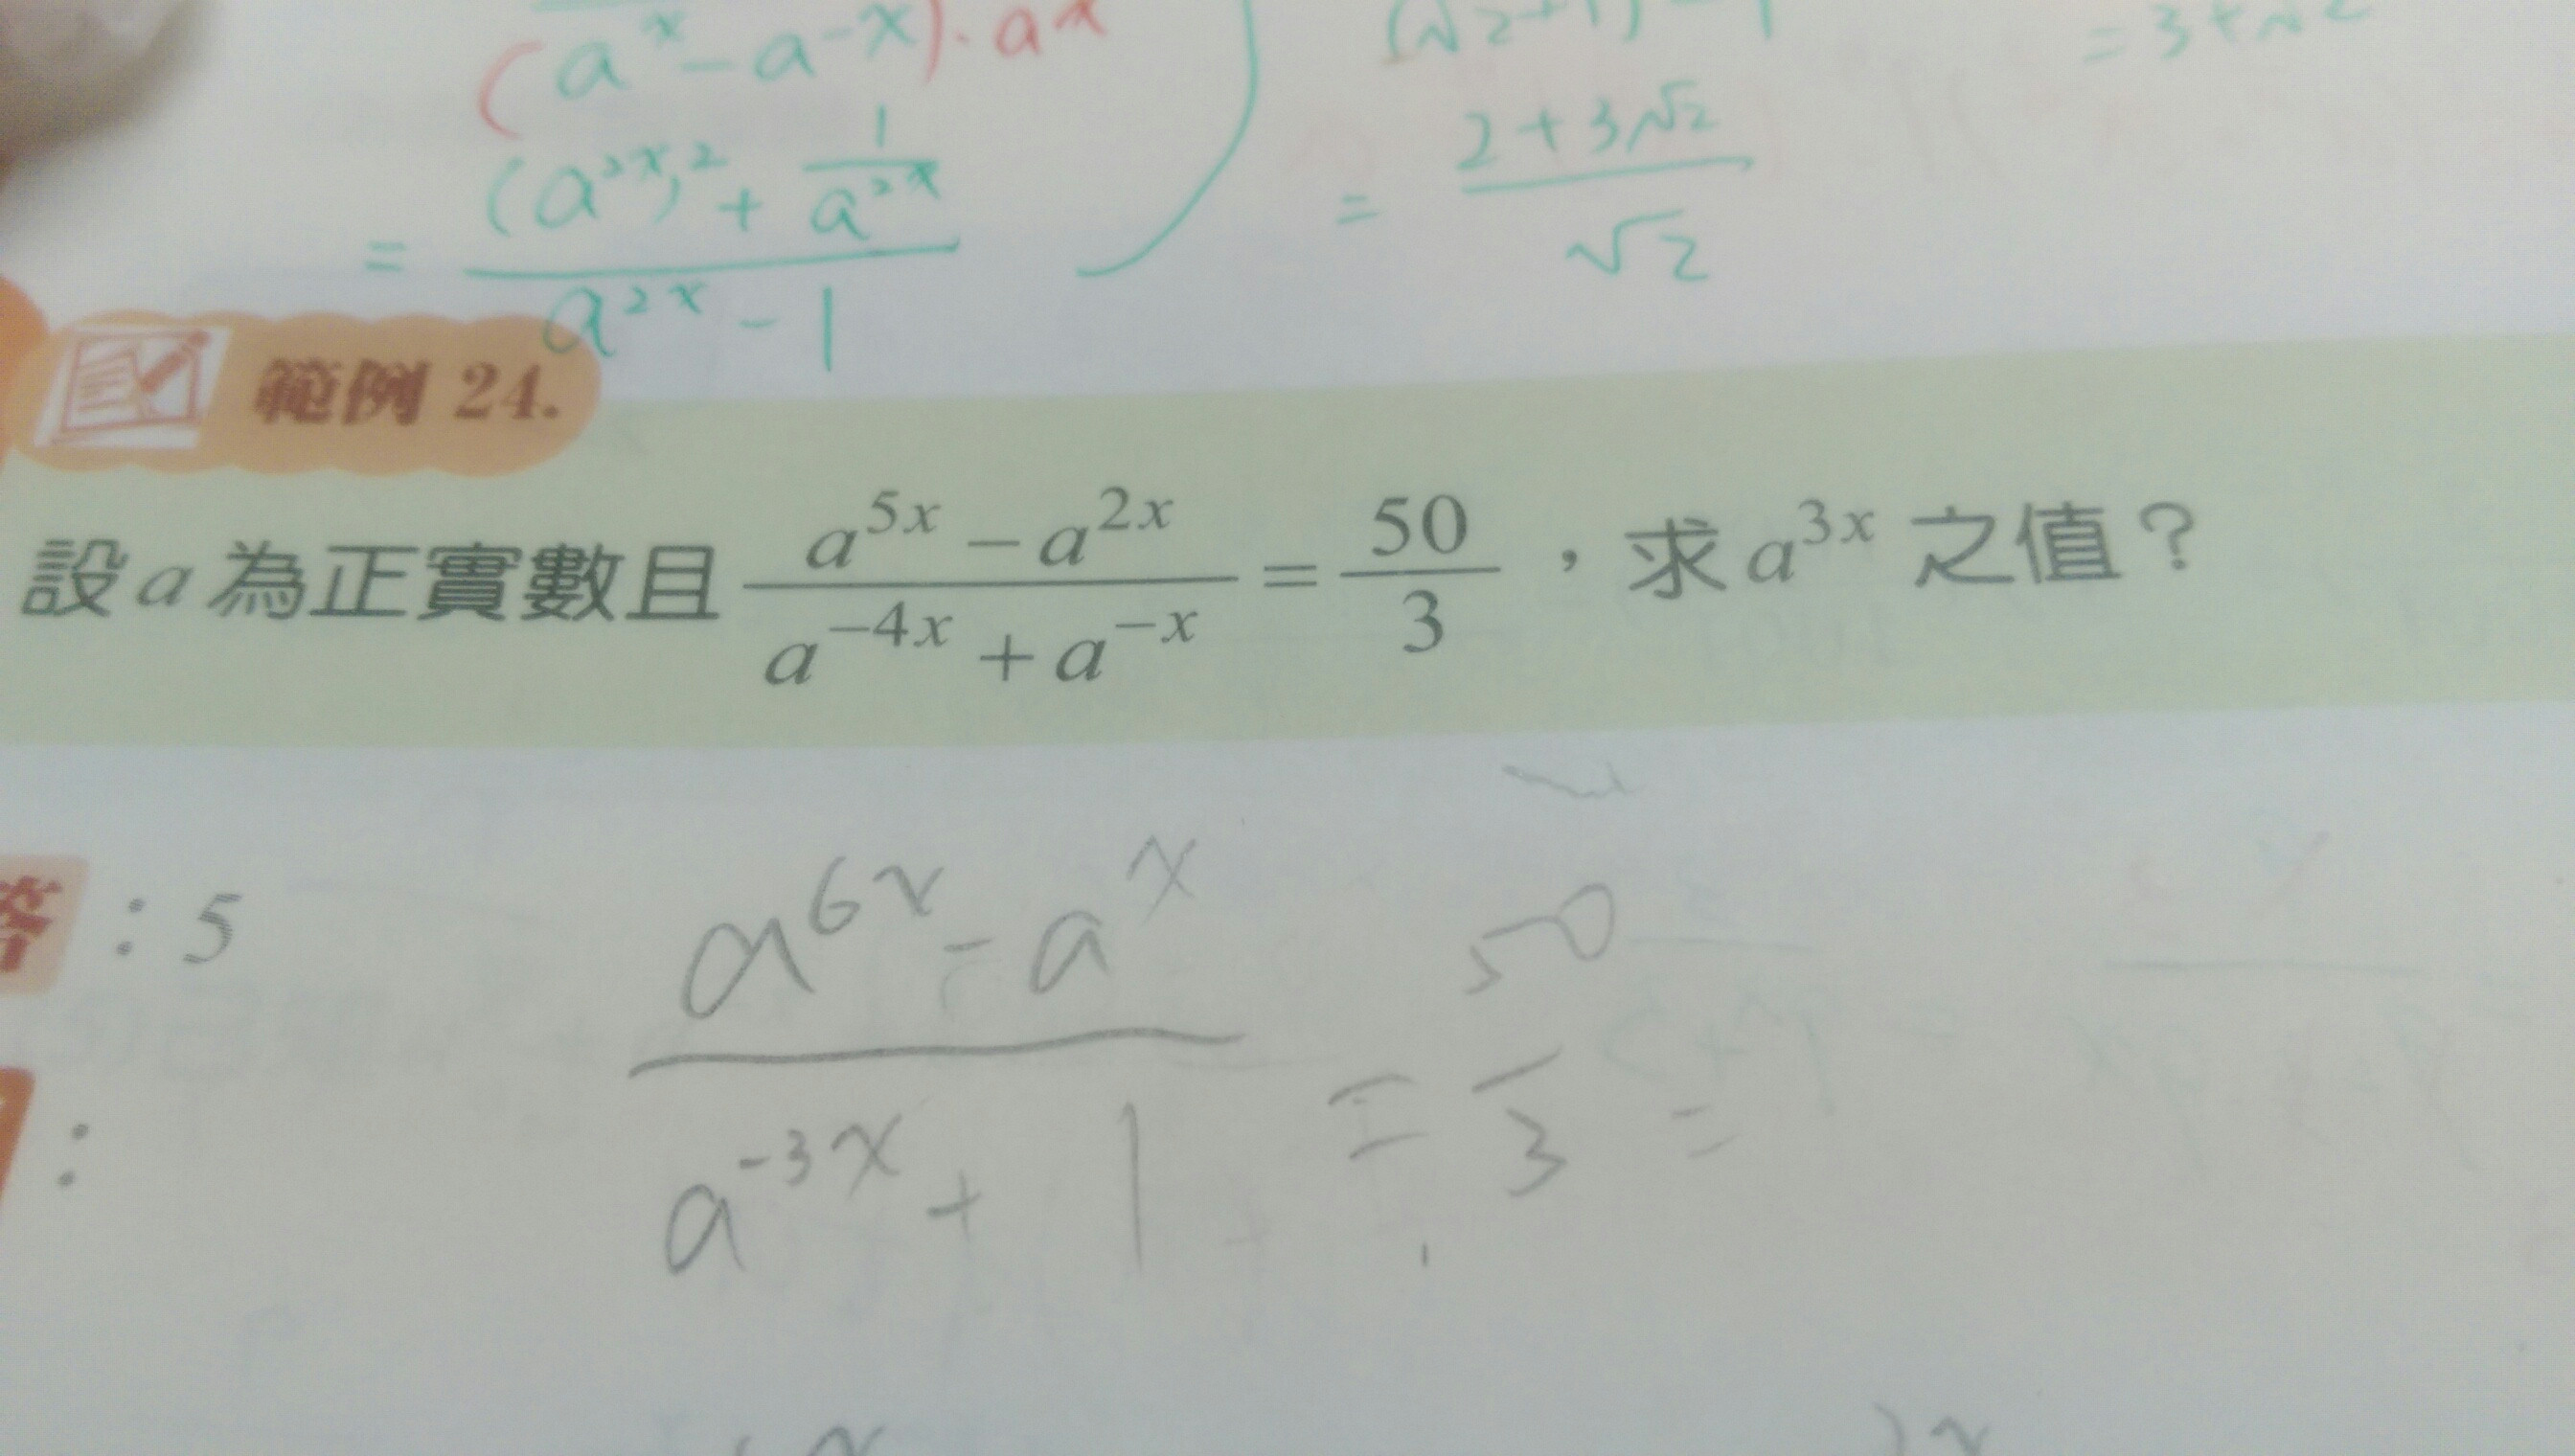 (a^x - a^{-x})·a^x
= \frac{(a^{2x})^2 + \frac{1}{a^{2x}}}{a^{2x} - 1}
(√2+1) - 1
= \frac{2+3√2}{√2}
= 3+√2
範例 24.
設 a 為正實數且 \frac{a^{5x} - a^{2x}}{a^{-4x} + a^{-x}} = \frac{50}{3}，求 a^{3x} 之值？
答：5
：
\frac{a^{6x} - a^x}{a^{-3x} + 1} = \frac{50}{3} =